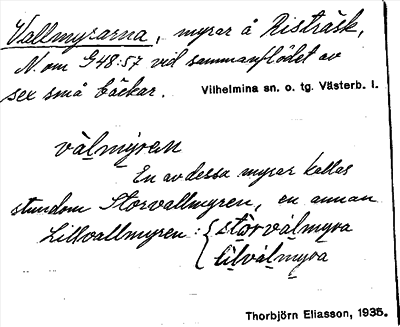 Vallmyrarna, myrar å Risträsk,
N. om G48:57 vid sammanflödet av
sex små bäckar. Vilhelmina sn. o. tg. Västerb. l.
vàlmỳren
En av dessa myrar kallas
stundom Storvallmyren, en annan
Lillvallmyren: { stòrválmyra
lìlválmyra
Thorbjörn Eliasson, 1935.